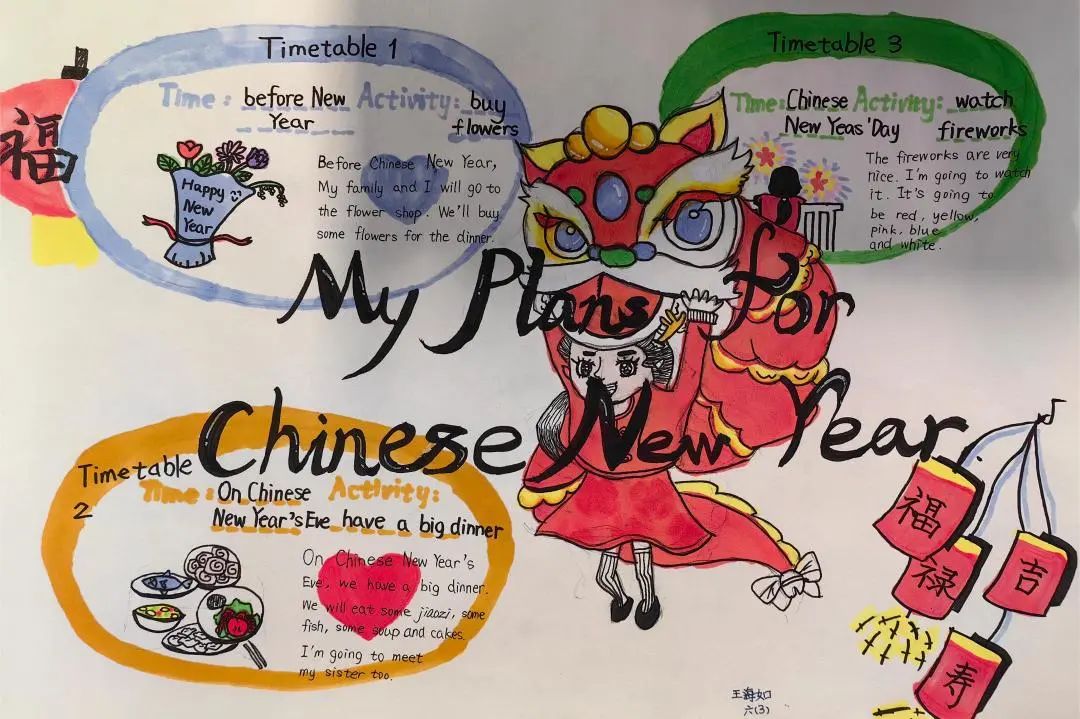 Timetable 1
Time: before New Activity: buy
Year flowers
Before Chinese New Year,
My family and I will go to
the flower shop. We'll buy
some flowers for the dinner.
Happy
New
Year
福
Timetable 3
Time: Chinese Activity: watch
New Yeas'Day fireworks
The fireworks are very
nice. I'm going to watch
it. It's going to
be red, yellow,
pink, blue
and white.
My Plans for
Chinese New Year.
Timetable
2
Time: On Chinese Activity:
New Year's Eve have a big dinner
On Chinese New Year's
Eve, we have a big dinner.
We will eat some jiaozi, some
fish, some soup and cakes.
I'm going to meet
my sister too.
福
禄
吉
寿
王海如
六(3)